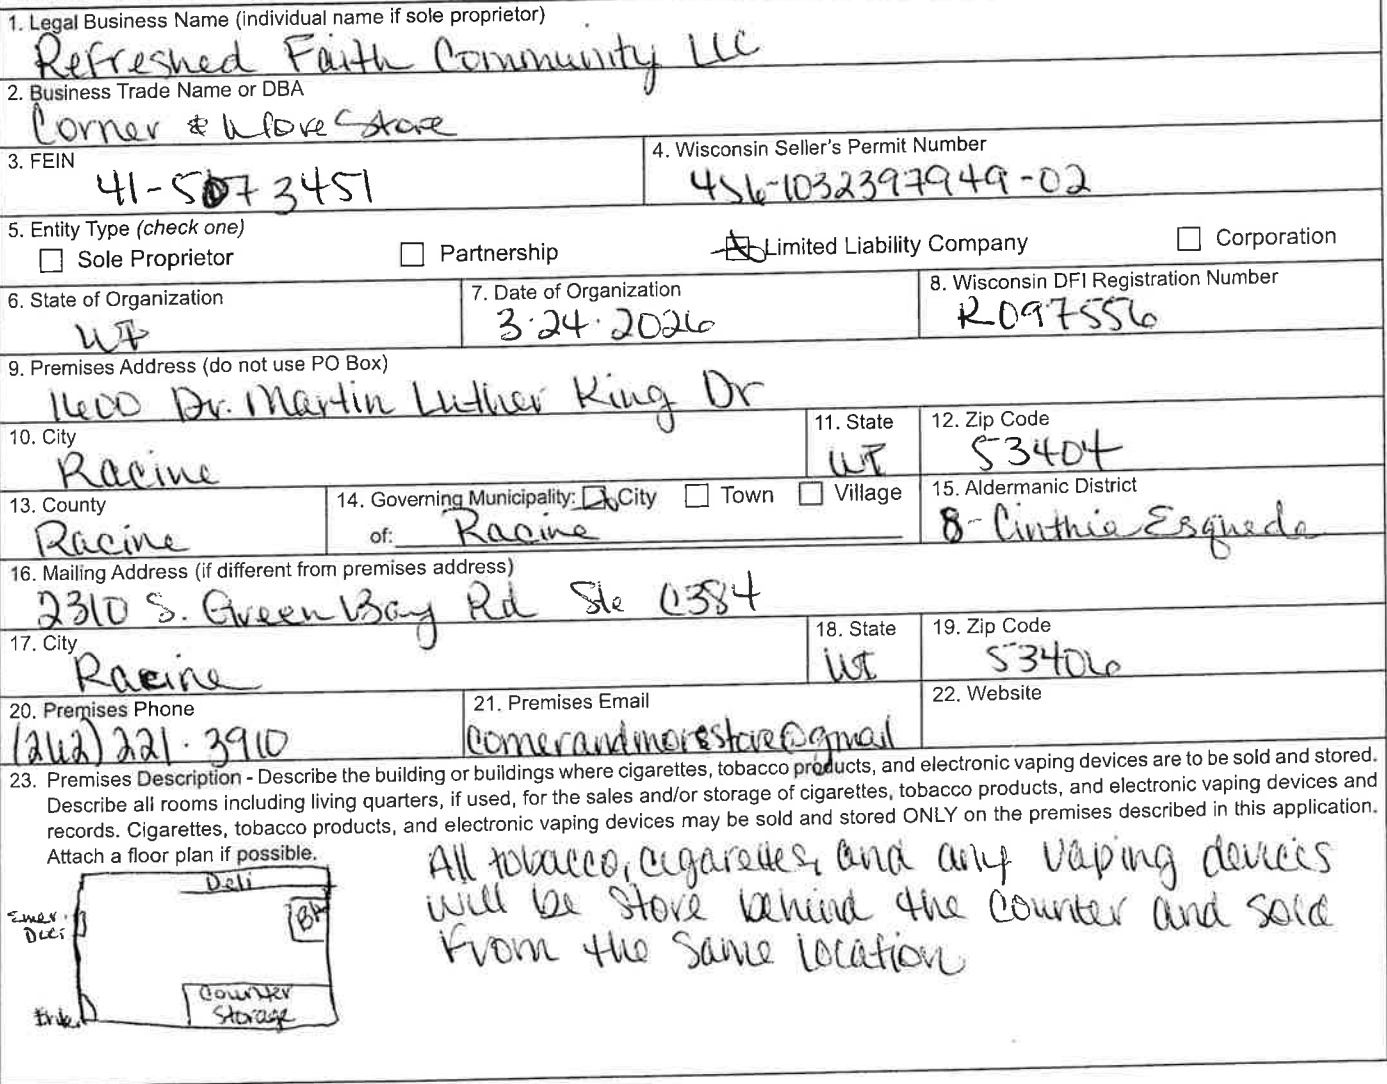 1. Legal Business Name (individual name if sole proprietor)
Refreshed Faith Community LLC
2. Business Trade Name or DBA
Corner & More Store
3. FEIN
41-5073451
4. Wisconsin Seller's Permit Number
456-1032397949-02
5. Entity Type (check one)
Sole Proprietor
Partnership
Limited Liability Company
Corporation
6. State of Organization
WI
7. Date of Organization
3.24.2026
8. Wisconsin DFI Registration Number
R097556
9. Premises Address (do not use PO Box)
1600 Dr. Martin Luther King Dr
10. City
Racine
11. State
WI
12. Zip Code
53404
13. County
Racine
14. Governing Municipality: City Town Village
of: Racine
15. Aldermanic District
8- Cinthia Esqueda
16. Mailing Address (if different from premises address)
2310 S. Green Bay Rd Ste C384
17. City
Racine
18. State
WI
19. Zip Code
53406
20. Premises Phone
(262) 221.3910
21. Premises Email
cornerandmorestore@gmail
22. Website
23. Premises Description - Describe the building or buildings where cigarettes, tobacco products, and electronic vaping devices are to be sold and stored.
Describe all rooms including living quarters, if used, for the sales and/or storage of cigarettes, tobacco products, and electronic vaping devices and
records. Cigarettes, tobacco products, and electronic vaping devices may be sold and stored ONLY on the premises described in this application.
Attach a floor plan if possible.
All tobacco, cigarettes, and any vaping devices
will be store behind the counter and sold
from the same location
Deli
Emer.
Counter
Storage